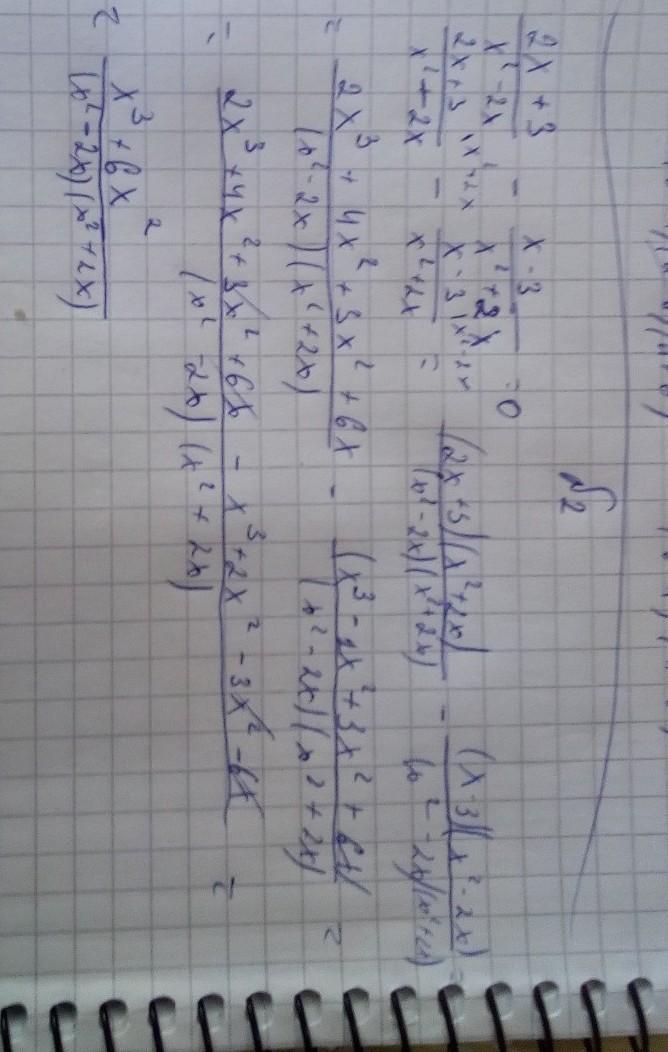 √2
(2x + 3)/(x² - 2x) - (x - 3)/(x² + 2x) = 0
(2x + 3)/(x² - 2x) | x² + 2x - (x - 3)/(x² + 2x) | x² - 2x = ((2x + 3)(x² + 2x))/((x² - 2x)(x² + 2x)) - ((x - 3)(x² - 2x))/((x² - 2x)(x² + 2x)) =
= (2x³ + 4x² + 3x² + 6x)/((x² - 2x)(x² + 2x)) - (x³ - 2x² + 3x² + 6x)/((x² - 2x)(x² + 2x)) =
= (2x³ + 4x² + 3x² + 6x - x³ + 2x² - 3x² - 6x)/((x² - 2x)(x² + 2x)) =
= (x³ + 6x²)/((x² - 2x)(x² + 2x))